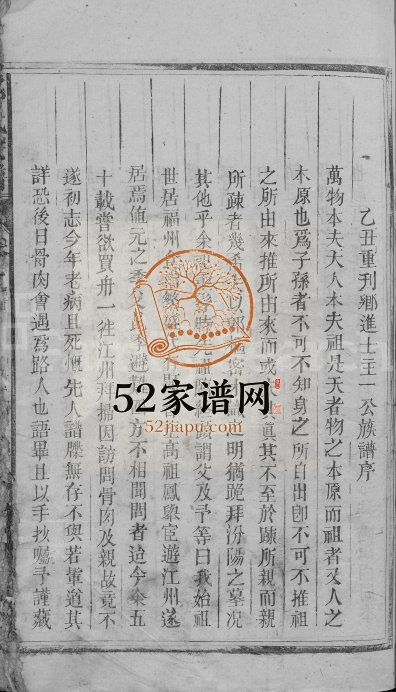 乙丑重刊鄉進士王一公族譜序
萬物本夫天人本夫祖是天者物之本原而祖者又人之
本原也爲子孫者不可不知身之所自出卽不可不推祖
之所由來推所由來而或 眞其不至於疎所親而親
所疎者幾 明猶跪拜汾陽之墓况
其他乎余 時先祖 謂父及予等曰我始祖
世居福州 高祖鳳舉宦遊江州遂
居焉値元之季 避 方不相聞問者迨今粂五
十載嘗欲買舟一徃江州拜掃因訪問骨肉及親故竟不
遂初志今年老病且死慨先人譜牒無存不與若輩道其
詳恐後日骨肉會遇爲路人也語畢且以手抄囑予謹藏
52家谱网
52jiapu.com